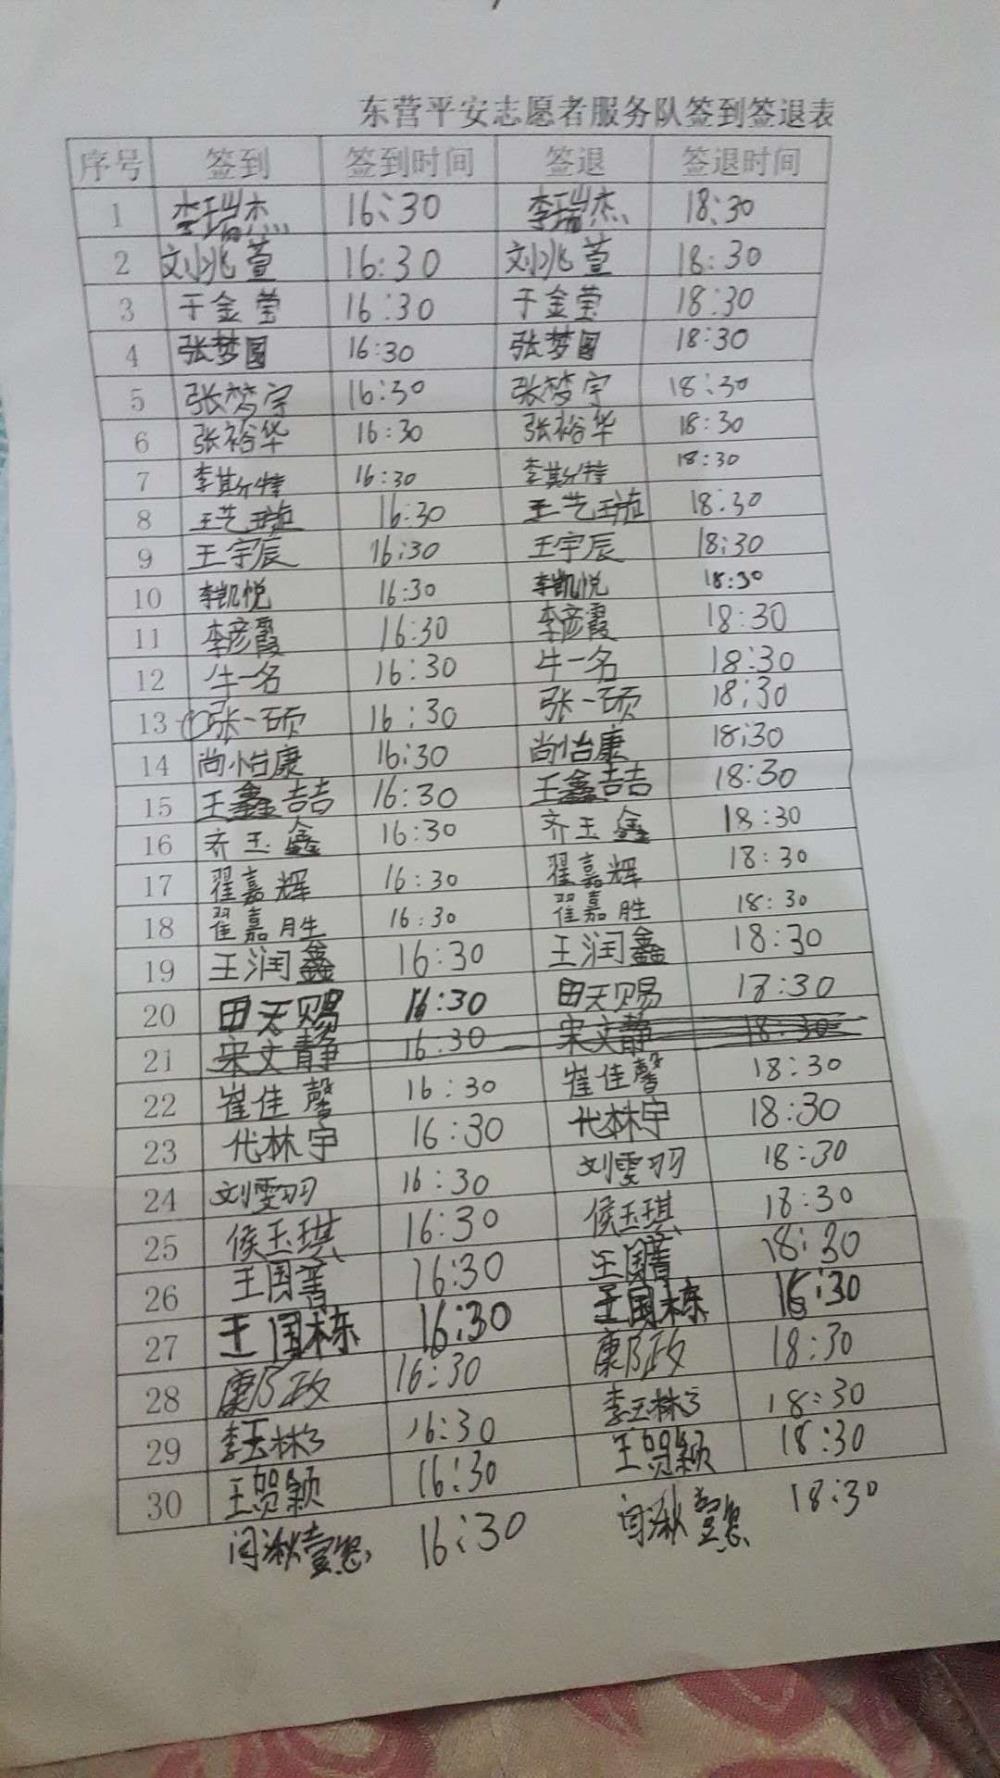 东营平安志愿者服务队签到签退表
序号 签到 签到时间 签退 签退时间
1 李瑞杰 16:30 李瑞杰 18:30
2 刘兆萱 16:30 刘兆萱 18:30
3 于金莹 16:30 于金莹 18:30
4 张梦圆 16:30 张梦圆 18:30
5 张梦宇 16:30 张梦宇 18:30
6 张裕华 16:30 张裕华 18:30
7 李斯特 16:30 李斯特 18:30
8 王艺璇 16:30 王艺璇 18:30
9 王宇辰 16:30 王宇辰 18:30
10 李凯悦 16:30 李凯悦 18:30
11 李彦霞 16:30 李彦霞 18:30
12 牛一名 16:30 牛一名 18:30
13 张一硕 16:30 张一硕 18:30
14 尚怡康 16:30 尚怡康 18:30
15 王鑫喆 16:30 王鑫喆 18:30
16 齐玉鑫 16:30 齐玉鑫 18:30
17 翟嘉辉 16:30 翟嘉辉 18:30
18 翟嘉胜 16:30 翟嘉胜 18:30
19 王润鑫 16:30 王润鑫 18:30
20 田天赐 16:30 田天赐 18:30
21 宋文静 16:30 宋文静 18:30
22 崔佳馨 16:30 崔佳馨 18:30
23 代林宇 16:30 代林宇 18:30
24 刘雯羽 16:30 刘雯羽 18:30
25 侯玉琪 16:30 侯玉琪 18:30
26 王国菁 16:30 王国菁 18:30
27 王国栋 16:30 王国栋 16:30
28 康乃政 16:30 康乃政 18:30
29 李玉林 16:30 李玉林 18:30
30 王贺颖 16:30 王贺颖 18:30
16:30 18:30